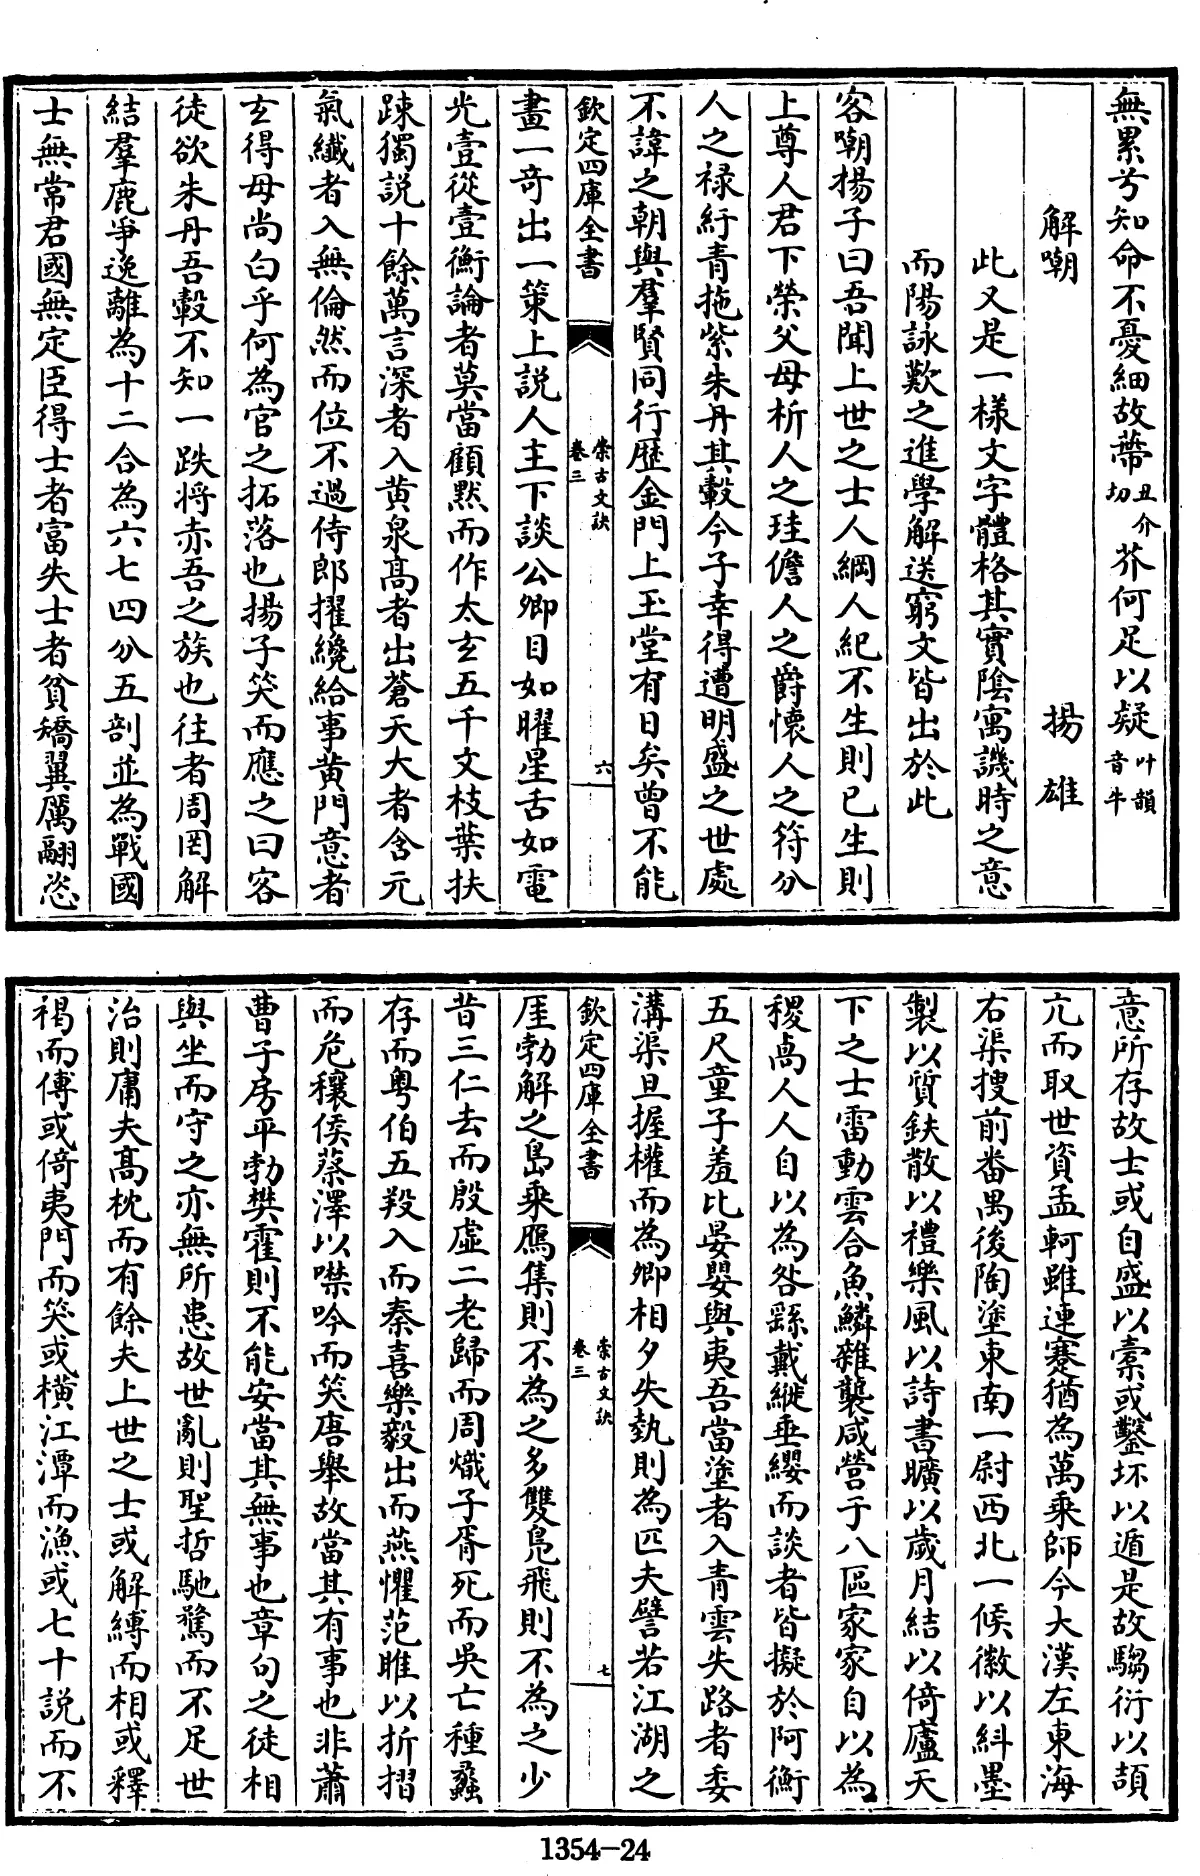 無累兮知命不憂細故蔕丑介切芥何足以疑叶韻音牛
解嘲 揚雄
此又是一樣文字體格其實陰寓譏時之意
而陽詠歎之進學解送窮文皆出於此
客嘲揚子曰吾聞上世之士人綱人紀不生則已生則
上尊人君下榮父母析人之珪儋人之爵懷人之符分
人之禄紆青拖紫朱丹其轂今子幸得遭明盛之世處
不諱之朝與羣賢同行歴金門上玉堂有日矣曾不能
欽定四庫全書 崇古文訣 卷三 六
畫一竒出一䇿上説人主下談公卿目如曜星舌如電
光壹從壹衡論者莫當顧黙而作太玄五千文枝葉扶
踈獨説十餘萬言深者入黄泉髙者出蒼天大者含元
氣纎者入無倫然而位不過侍郎擢纔給事黄門意者
玄得毋尚白乎何為官之拓落也揚子笑而應之曰客
徒欲朱丹吾轂不知一跌将赤吾之族也往者周罔解
結羣鹿爭逸離為十二合為六七四分五剖並為戰國
士無常君國無定臣得士者富失士者貧矯翼厲翮恣
意所存故士或自盛以橐或鑿坏以遁是故騶衍以頡
亢而取世資孟軻雖連蹇猶為萬乘師今大漢左東海
右渠搜前番禺後陶塗東南一尉西北一候徽以糾墨
製以質鈇散以禮樂風以詩書曠以歳月結以倚廬天
下之士雷動雲合魚鱗雜襲咸營于八區家家自以為
稷卨人人自以為咎繇戴縰垂纓而談者皆擬於阿衡
五尺童子羞比晏嬰與夷吾當塗者入青雲失路者委
溝渠旦握權而為卿相夕失埶則為匹夫譬若江湖之
欽定四庫全書 崇古文訣 卷三 七
厓勃解之島乘鴈集則不為之多雙鳧飛則不為之少
昔三仁去而殷虛二老歸而周熾子胥死而吳亡種蠡
存而粤伯五羖入而秦喜樂毅出而燕懼范雎以折摺
而危穰侯蔡澤以噤吟而笑唐舉故當其有事也非蕭
曹子房平勃樊霍則不能安當其無事也章句之徒相
與坐而守之亦無所患故世亂則聖哲馳騖而不足世
治則庸夫髙枕而有餘夫上世之士或解縛而相或釋
褐而傅或倚夷門而笑或横江潭而漁或七十説而不
1354-24